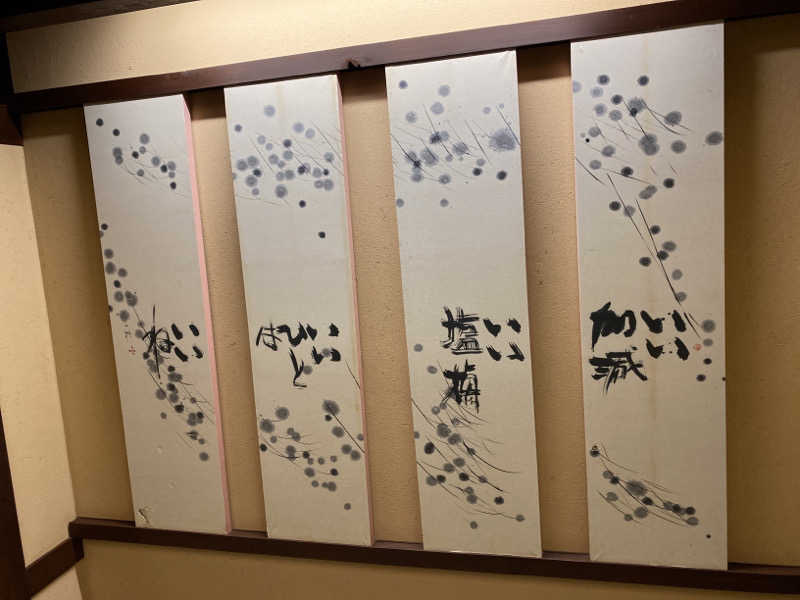 いい
加減
いい
塩梅
いい
ひと
は
いい
ね